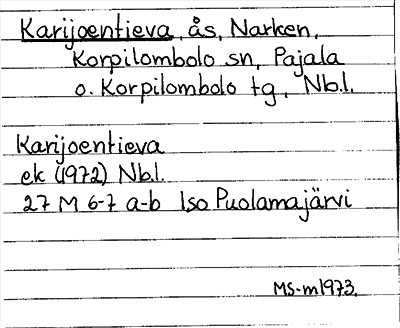 Karijoentieva, ås, Narken,
Korpilombolo sn, Pajala
o. Korpilombolo tg, Nb.l.
Karijoentieva
ek (1972) Nb.l.
27 M 6-7 a-b Iso Puolamajärvi
MS-m1973.